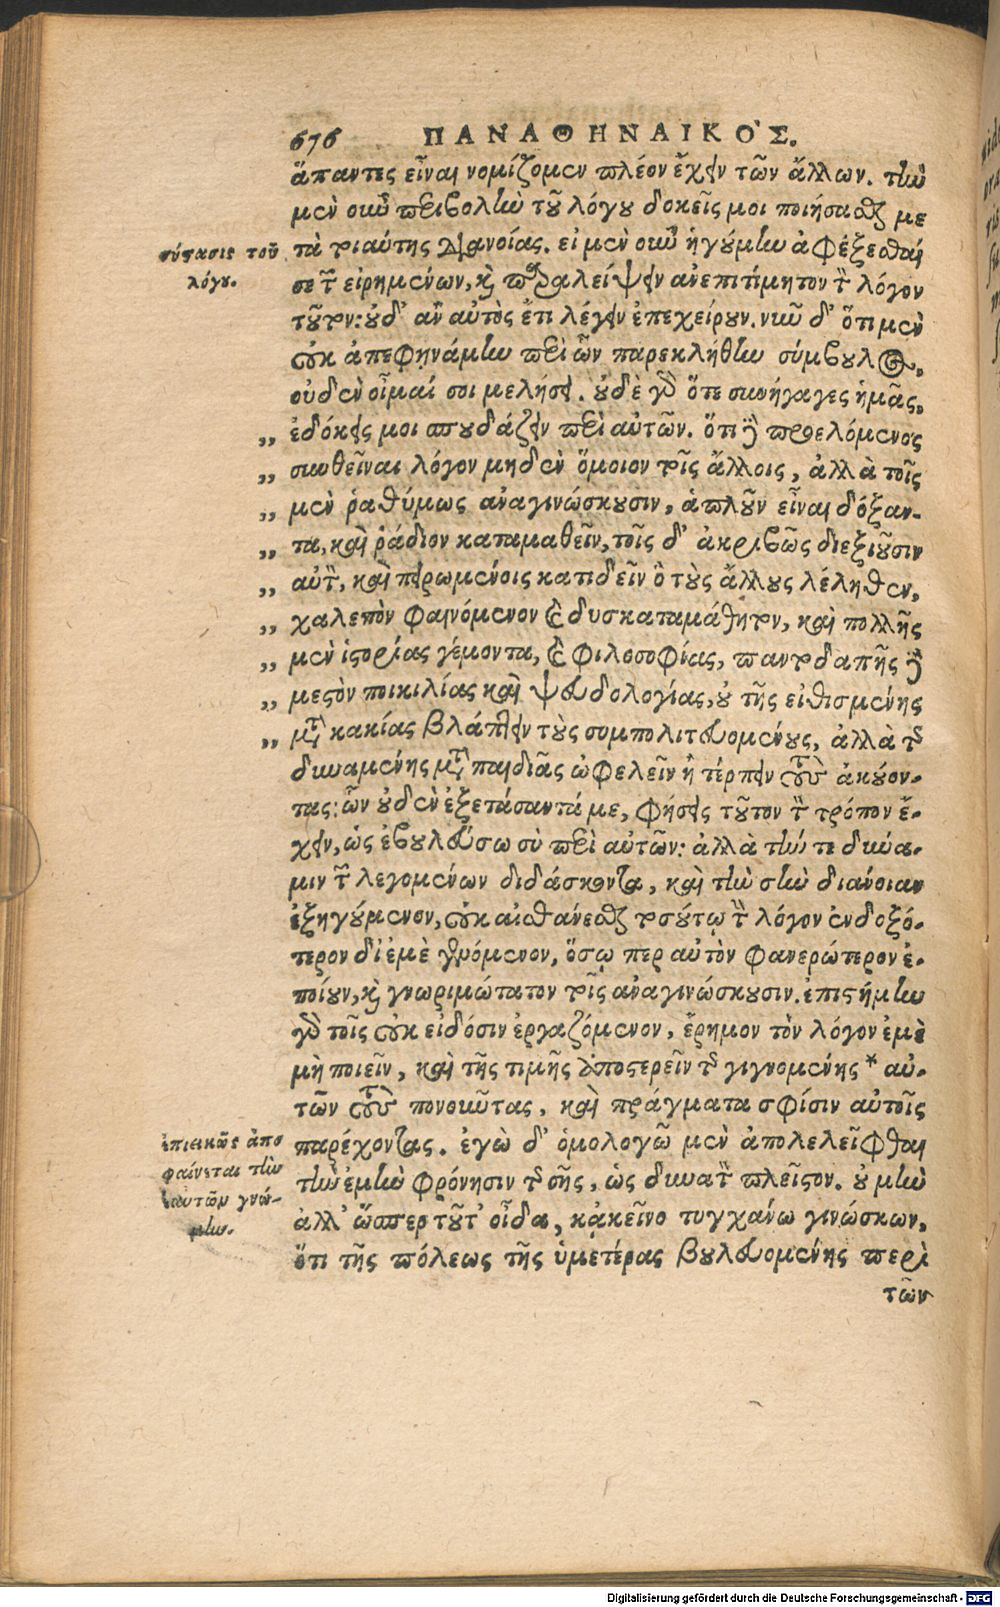 676 ΠΑΝΑΘΗΝΑΙΚΟΣ.
ἅπαντες εἶναι νομίζομεν πλέον ἔχειν τῶν ἄλλων. τὴν
μὲν οὖν περιβολὴν τοῦ λόγου δοκεῖς μοι ποιήσασθαι με
τὰ τοιαύτης διανοίας. εἰ μὲν οὖν ἡγούμην ἀφέξεσθαί
σύστασις τοῦ
λόγου.
σε τῶν εἰρημένων, καὶ παραλείψειν ἀνεπιτίμητον τὸν λόγον
τοῦτον: οὐδ' ἂν αὐτὸς ἔτι λέγειν ἐπεχείρουν. νῦν δ' ὅτι μὲν
οὐκ ἀπεφηνάμην περὶ ὧν παρεκλήθην σύμβουλος,
οὐδὲν οἶμαί σοι μελήσειν. οὐδὲ γὰρ ὅτε συνήγαγες ἡμᾶς,
„ ἐδόκεις μοι σπουδάζειν περὶ αὐτῶν. ὅτι δὲ προελόμενος
„ συνθεῖναι λόγον μηδὲν ὅμοιον τοῖς ἄλλοις, ἀλλὰ τοῖς
„ μὲν ῥαθύμως ἀναγινώσκουσιν, ἁπλοῦν εἶναι δόξαν-
„ τα, καὶ ῥάδιον καταμαθεῖν, τοῖς δ' ἀκριβῶς διεξιοῦσιν
„ αὐτὸν, καὶ πειρωμένοις κατιδεῖν ὃ τοὺς ἄλλους λέληθεν,
„ χαλεπὸν φαινόμενον καὶ δυσκαταμάθητον, καὶ πολλῆς
„ μὲν ἱστορίας γέμοντα, καὶ φιλοσοφίας, παντοδαπῆς δὲ
„ μεστὸν ποικιλίας καὶ ψευδολογίας, οὐ τῆς εἰθισμένης
„ μετὰ κακίας βλάπτειν τοὺς συμπολιτευομένους, ἀλλὰ τῆς
δυναμένης μετὰ παιδιᾶς ὠφελεῖν ἢ τέρπειν τοὺς ἀκούον-
τας: ὧν οὐδὲν ἐξετάσαντά με, φήσεις τοῦτον τὸν τρόπον ἔ-
χειν, ὡς ἐβουλεύσω σὺ περὶ αὐτῶν: ἀλλὰ τήν τε δύνα-
μιν τῶν λεγομένων διδάσκοντα, καὶ τὴν σὴν διάνοιαν
ἐξηγούμενον, οὐκ αἰσθάνεσθαι τοσούτῳ τὸν λόγον ἐνδοξό-
τερον δι' ἐμὲ γενόμενον, ὅσῳ περ αὐτὸν φανερώτερον ἐ-
ποίουν, καὶ γνωριμώτατον τοῖς ἀναγινώσκουσιν. ἐπιστήμην
γὰρ τοῖς οὐκ εἰδόσιν ἐργαζόμενον, ἔρημον τὸν λόγον ἐμὲ
μὴ ποιεῖν, καὶ τῆς τιμῆς ἀποστερεῖν τῆς γιγνομένης * αὐ-
τῶν τοὺς πονοῦντας, καὶ πράγματα σφίσιν αὐτοῖς
παρέχοντας. ἐγὼ δ' ὁμολογῶ μὲν ἀπολελεῖφθαι
ἐπιεικῶς ἀπο
φαίνεται τὴν
ἑαυτῶν γνώ-
μην.
τὴν ἐμὴν φρόνησιν τῆς σῆς, ὡς δυνατὸν πλεῖστον. οὐ μὴν
ἀλλ' ὥσπερ τοῦτ' οἶδα, κἀκεῖνο τυγχάνω γινώσκων,
ὅτι τῆς πόλεως τῆς ὑμετέρας βουλευομένης περὶ
τῶν
Digitalisierung gefördert durch die Deutsche Forschungsgemeinschaft - DFG